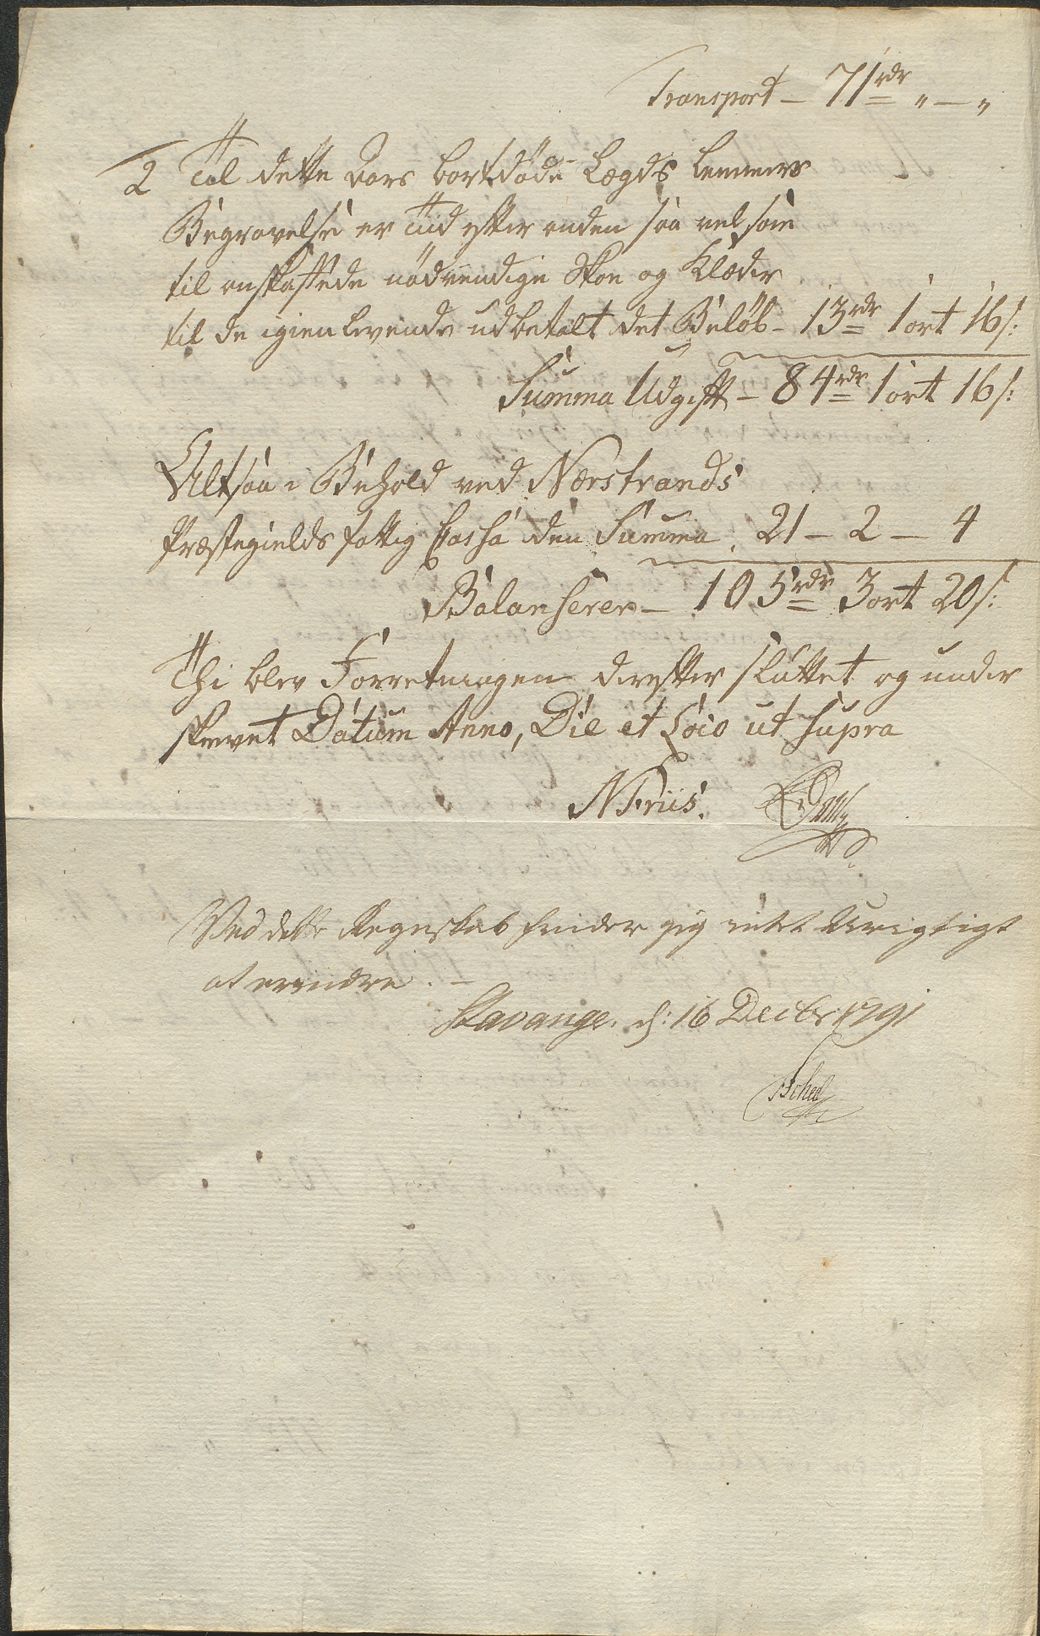 Transport – 71rdr „ – „
2 Til dette Aars bortdöde Lægds Lemmers
Begravelse er Tiid efter anden saa vel som
til anskaffede nödvendige Skoe og Klæder
til de igienlevende udbetalt det Belöb – 13rdr 1ort 16s:
Summa Udgift – 84rdr 1ort 16s:
Altsaa i Behold ved Nærstrands
Præstegields fattig Cassa den Summa. 21 – 2 – 4
Balanserer – 105rdr 3ort 20s:
Thi blev Forretningen derefter sluttet og under
skrevet Datum Anno, Die et Loco ut supra
N Friis.
Ved dette Regnskab finder jeg intet Urigtigt
at erindre. –
Stavanger d: 16 Decbr 1791
Scheel